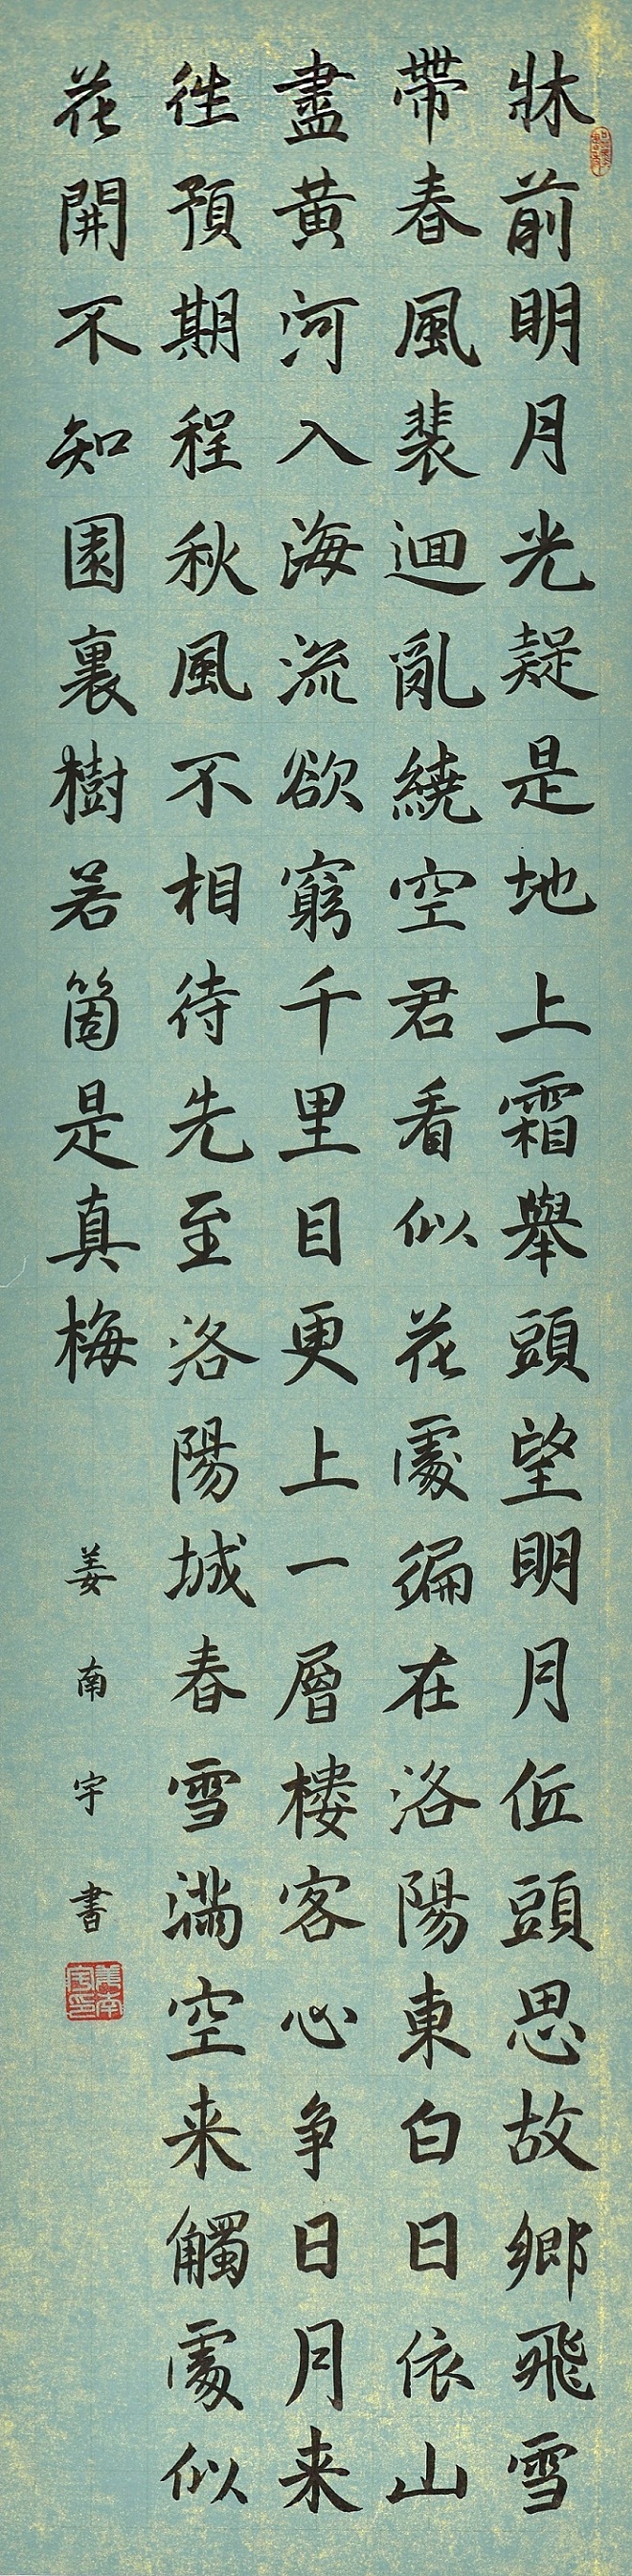 牀前明月光疑是地上霜舉頭望明月低頭思故鄉飛雪
帶春風裴迴亂繞空君看似花處偏在洛陽東白日依山
盡黄河入海流欲窮千里目更上一層樓客心争日月来
往預期程秋風不相待先至洛陽城春雪滿空来觸處似
花開不知園裏樹若箇是真梅
姜南宇書
姜南宇印